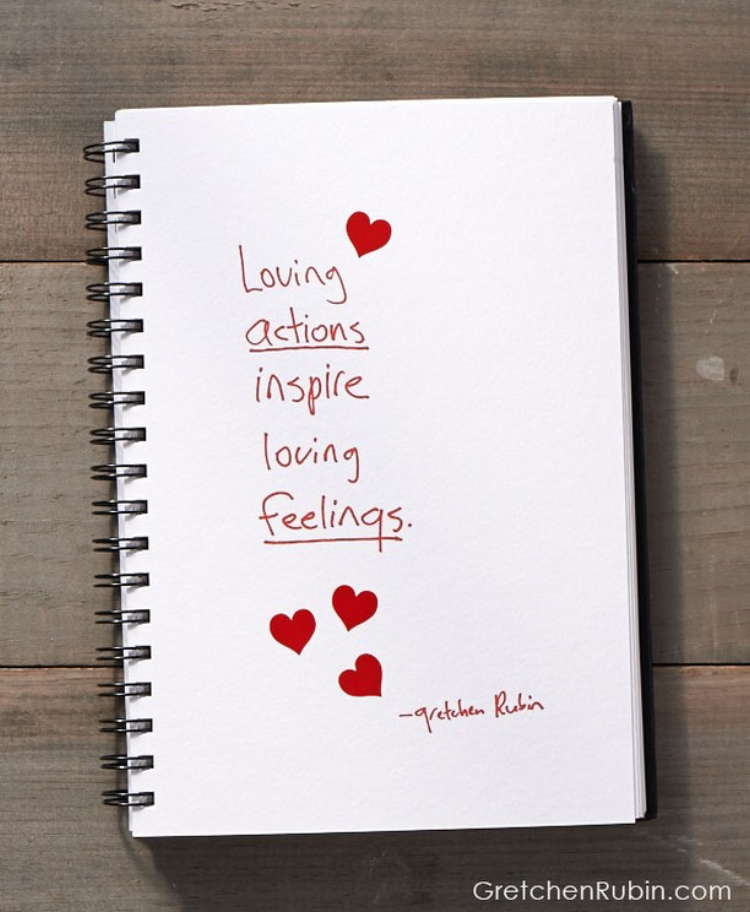 Loving
actions
inspire
loving
feelings.
-gretchen Rubin
GretchenRubin.com